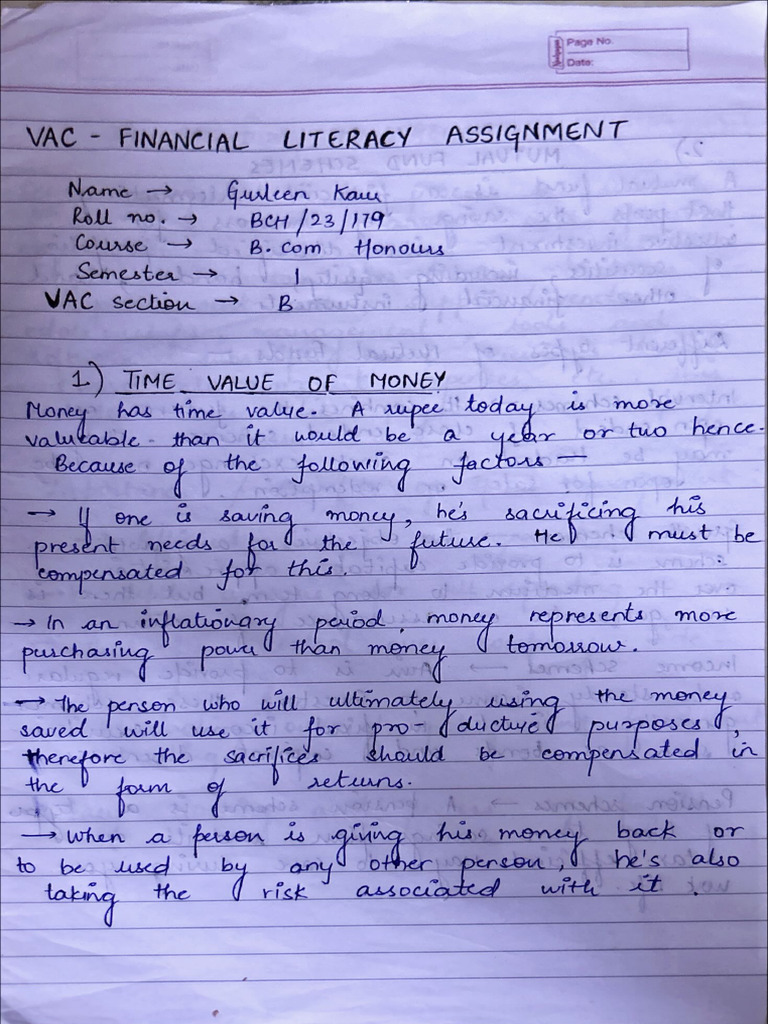 Page No.
Date:
VAC - FINANCIAL LITERACY ASSIGNMENT
Name → Gurleen Kaur
Roll no. → BCH/23/179
Course → B. com Honours
Semester → 1
VAC section → B
1.) TIME VALUE OF MONEY
Money has time value. A rupee today is more
valuetable than it would be a year or two hence.
Because of the following factors —
→ If one is saving money, he's sacrificing his
present needs for the future. He must be
compensated for this.
→ In an inflationary period, money represents more
purchasing power than money tomorrow.
→ The person who will ultimately using the money
saved will use it for pro-ductive purposes,
therefore the sacrifices should be compensated in
the form of returns.
→ When a person is giving his money back or
to be used by any other person, he's also
taking the risk associated with it.